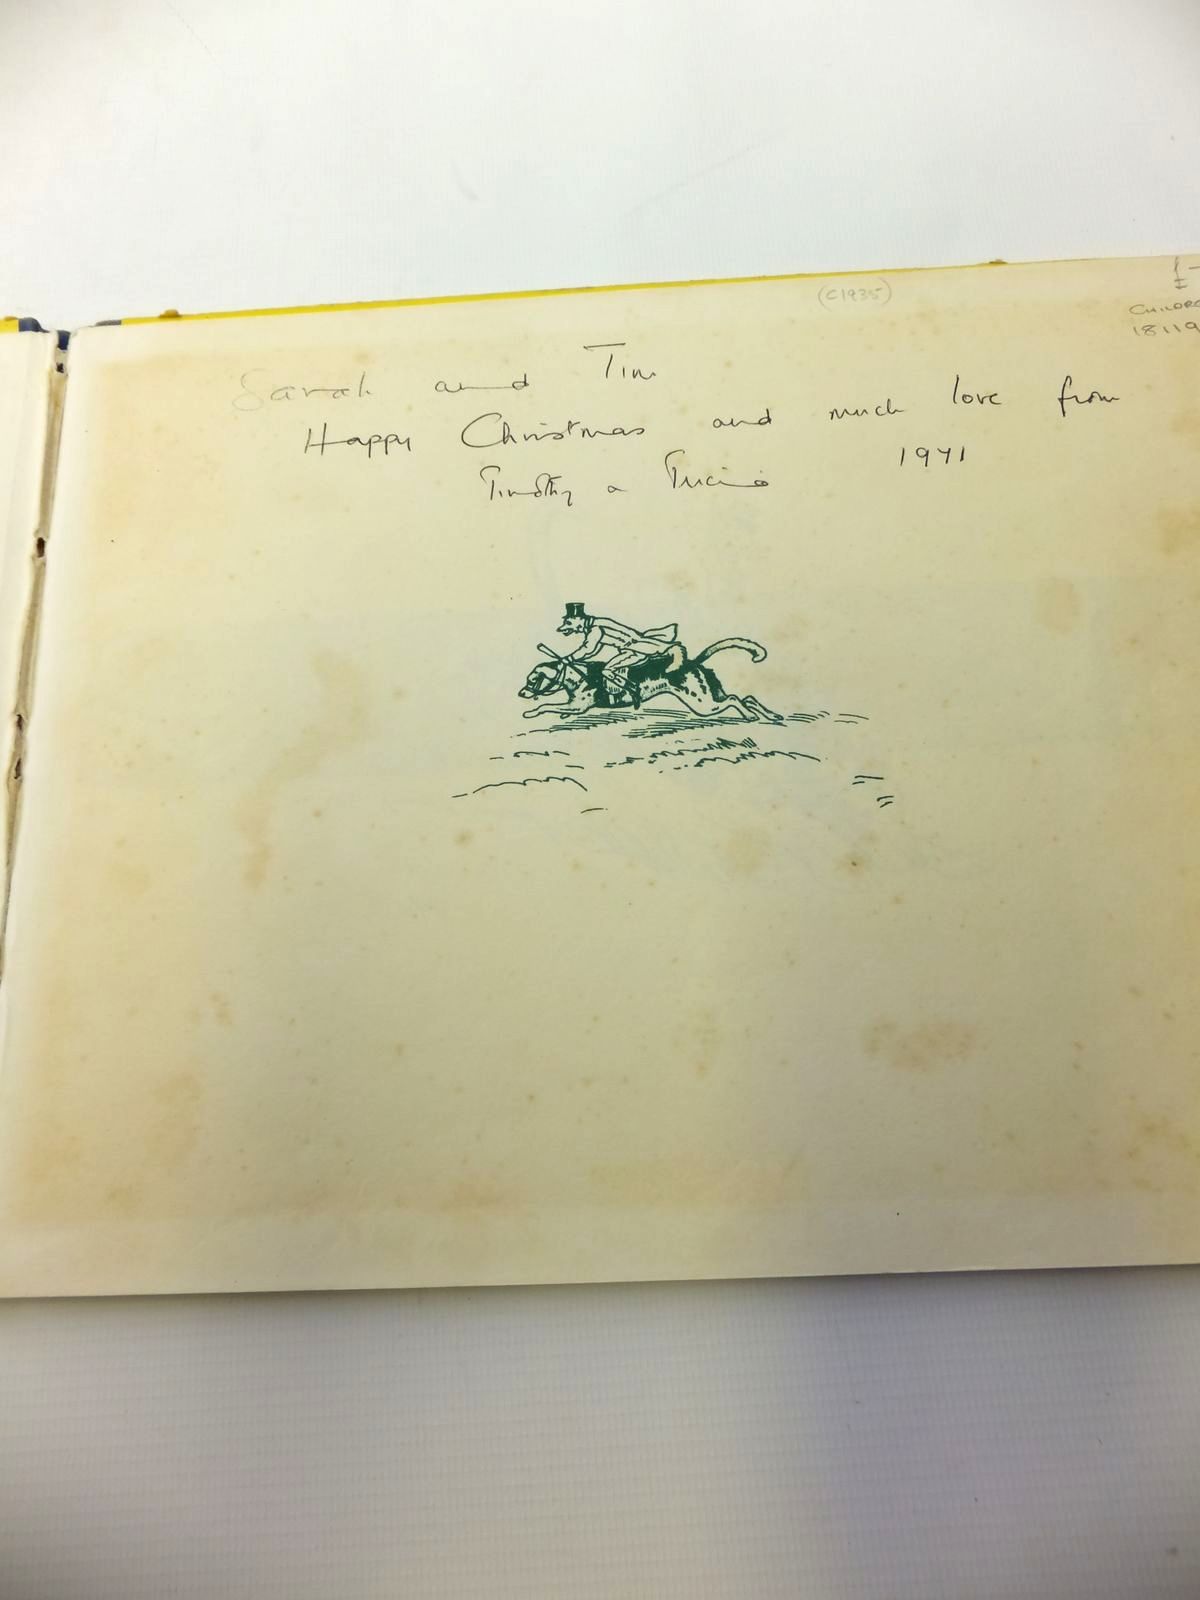 (C1935)
CHILDR
18119
Sarah and Tim
Happy Christmas and much love from
Timothy a 1971